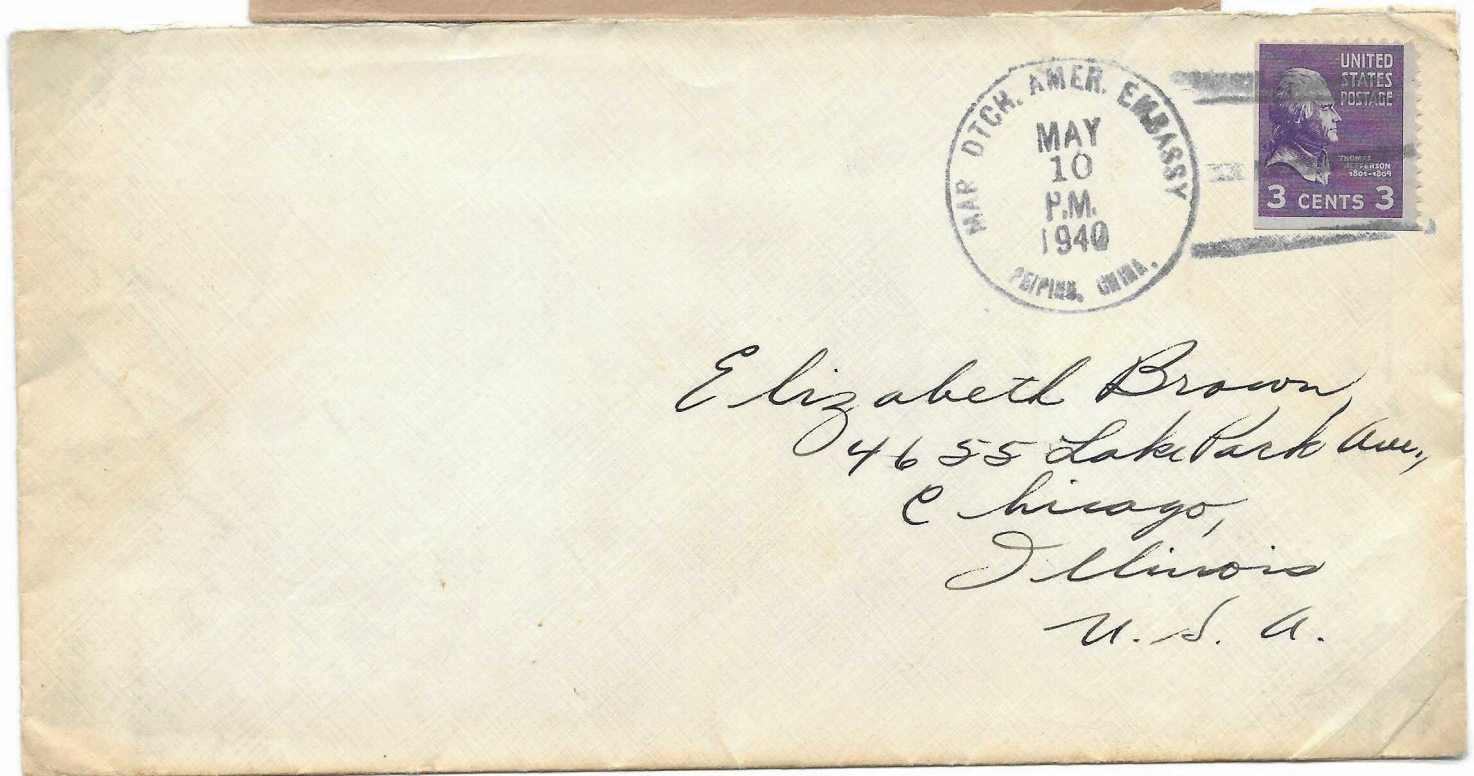 MAR. DTCH. AMER. EMBASSY
MAY
10
P.M.
1940
PEIPING, CHINA.
UNITED
STATES
POSTAGE
THOMAS
JEFFERSON
1801-1809
3 CENTS 3
Elizabeth Brown,
4655 Lake Park Ave.,
Chicago,
Illinois
U. S. A.